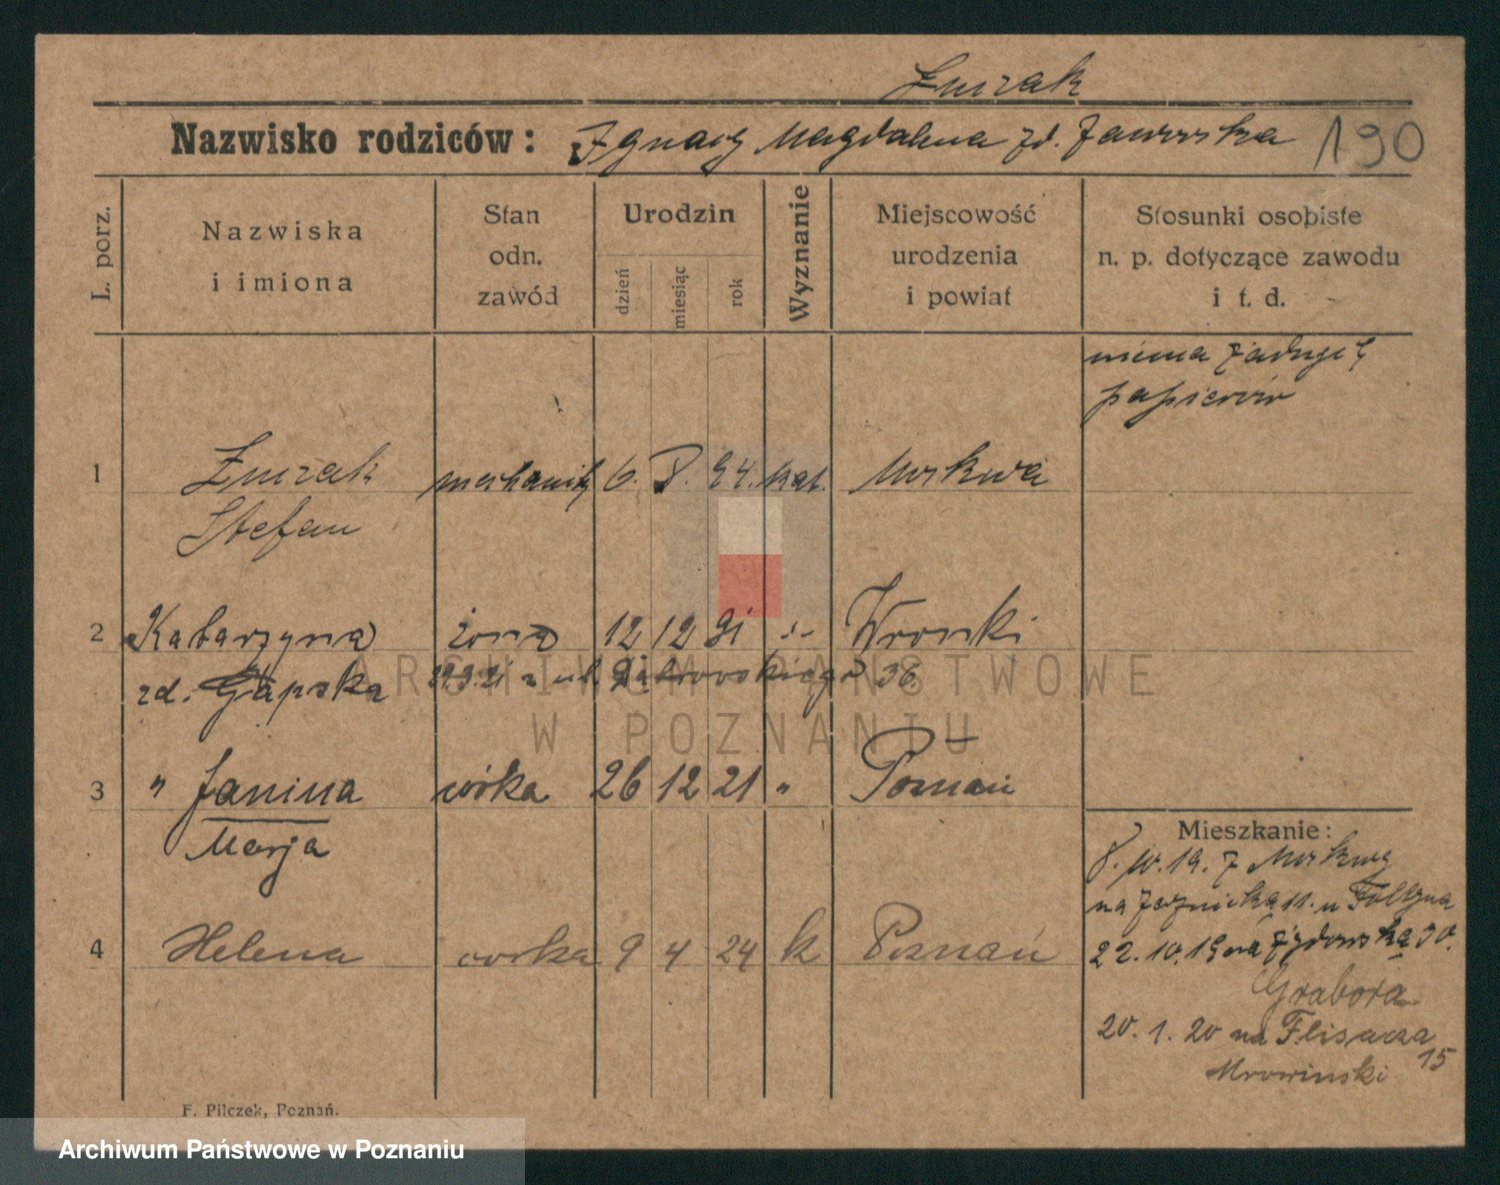 Żurak
Nazwisko rodziców: Ignacy Magdalena zd. Jaworska 190
L. porz.
Nazwiska
i imiona
Stan
odn.
zawód
Urodzin
dzień
miesiąc
rok
Wyznanie
Miejscowość
urodzenia
i powiat
Stosunki osobiste
n. p. dotyczące zawodu
i t. d.
papierów
1 Żurak mechanik 6. 8. 94. kat. Moskwa
Stefan
2 Katarzyna żona 12 12 91 Wronki
zd. Gapska 29.9.21 z ul. Dąbrowskiego 36.
3 " Janina córka 26 12 21 " Poznań
Marja
4 Helena córka 9 4 24 k Poznań
Mieszkanie:
8. 10. 19. z Moskwy
na 11. u
22. 10. 19 na Żydowską 30.
Grabota
20. 1. 20 na Flisacza
Mrowinski 15
F. Pilczek, Poznań.
ARCHIWUM PAŃSTWOWE
W POZNANIU
Archiwum Państwowe w Poznaniu